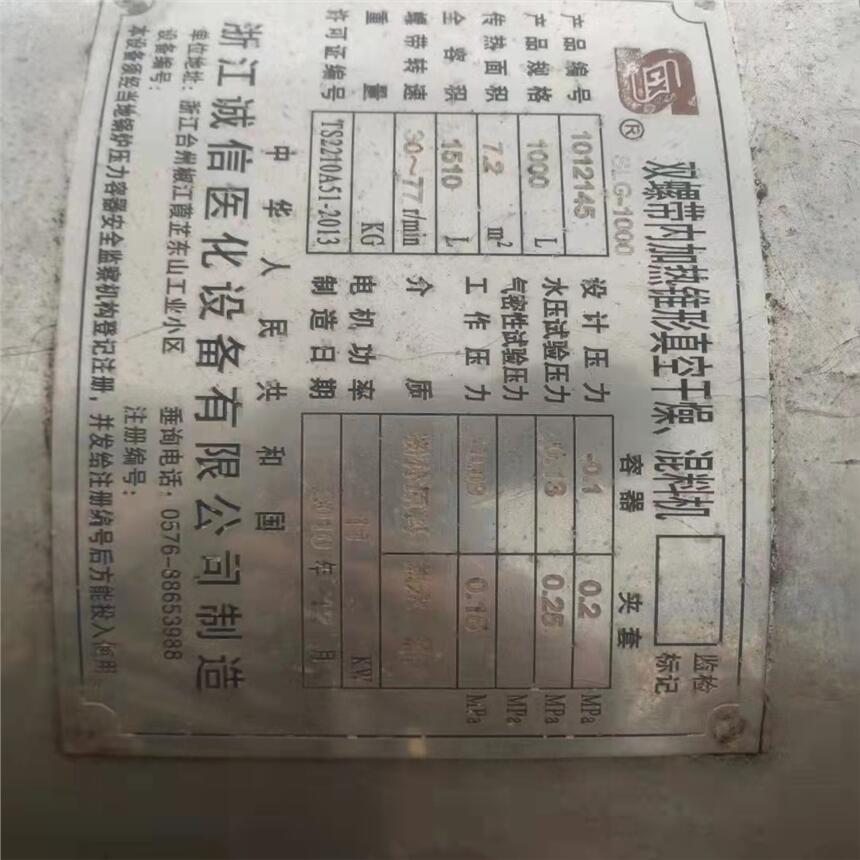 ®
双螺带内加热锥形真空干燥、混料机
SLG-1000
监检
标记
容器 夹套
产品编号 1012145 设计压力 -0.1 0.2 MPa
产品规格 1000 L 水压试验压力 0.25 MPa
传热面积 7.2 m² 气密性试验压力 MPa
全容积 1510 L 工作压力 MPa
螺带转速 30~77 r/min 介质
重量 KG 电机功率 11 KW
许可证编号 TS2210A51-2013 制造日期 年 月
中华人民共和国
浙江诚信医化设备有限公司制造
单位地址:浙江台州椒江葭芷东山工业小区 垂询电话:0576-88653988
设备编号: 注册编号:
本设备须经当地锅炉压力容器安全监察机构登记注册,并发给注册编号后方能投入使用